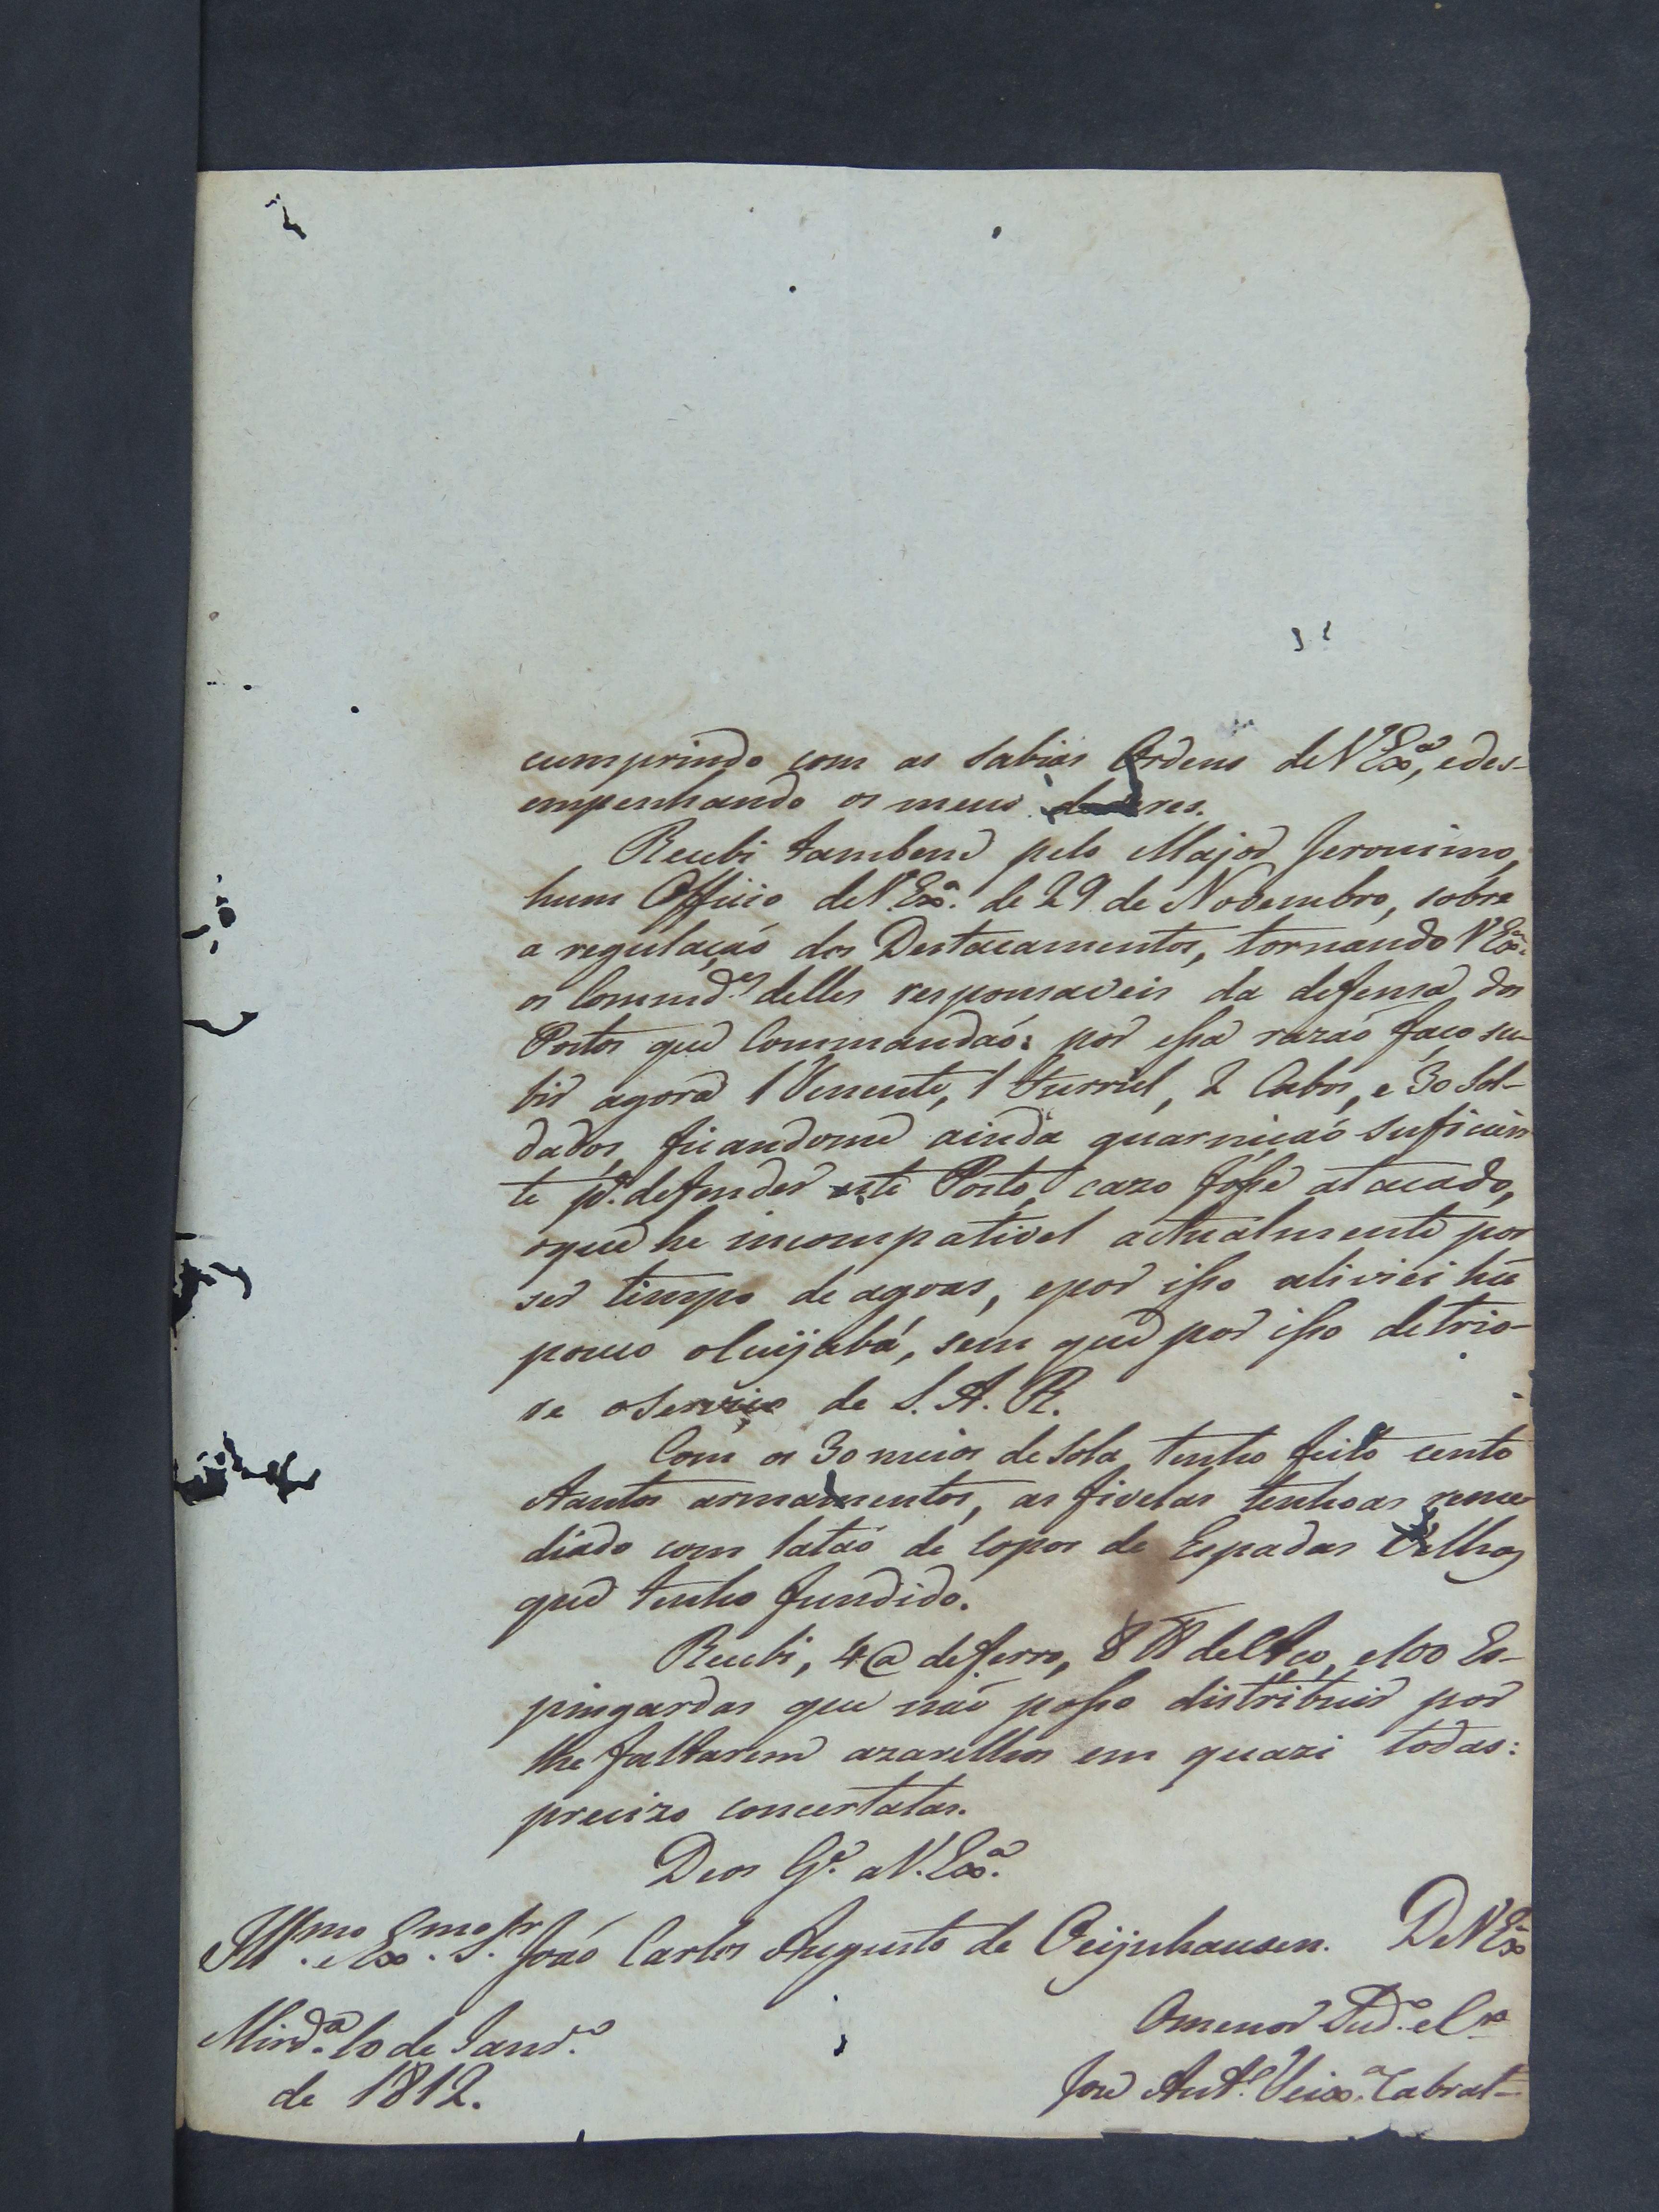 cumprindo com as sabias Ordens de V Exª, e des-
empenhando os meus deveres.
Recebi tambem pelo Major Jeronimo,
hum Officio de V. Exª. de 29 de Novembro, sobre
a regulaçaõ dos Destacamentos, tornando V Exª.
os Commd.es delles responsaveis da defensa dos
Postos que Commandaõ: por essa razaõ faço su-
bir agora 1 Tenente, 1 Furriel, 2 Cabos, e 30 Sol-
dados, ficandome ainda guarniçaõ suficien
te pª. defender este Posto, cazo fosse atacado,
oque he incompativel actualmente por
ser tempo de agoas, epor isso aliviei hũ
pouco oCuijabá, sem que por isso detrio-
re oServiço de S. A. R.
Com os 30 meios de Sola tenho feito cento
tantos armamentos, as fivelas tenhoas reme
diado com lataõ de copos de Espadas Velhas
que tenho fundido.
Recebi, 4 @ deferro, 8 ℔ deAço, e100 Es-
pingardas que naõ posso distribuir por
lhe faltarem azarelhos em quazi todas:
precizo concertalas.
Deos G.e a V. Exª.
Ill.mo e Ex.mo S.r Joaõ Carlos Augusto de Oeijnhausen. De V Exª
Mirdª. 10 de Janr.o
de 1812.
Omenor Sud.o e Cr.o
Joze Ant.o Teixª. Cabral